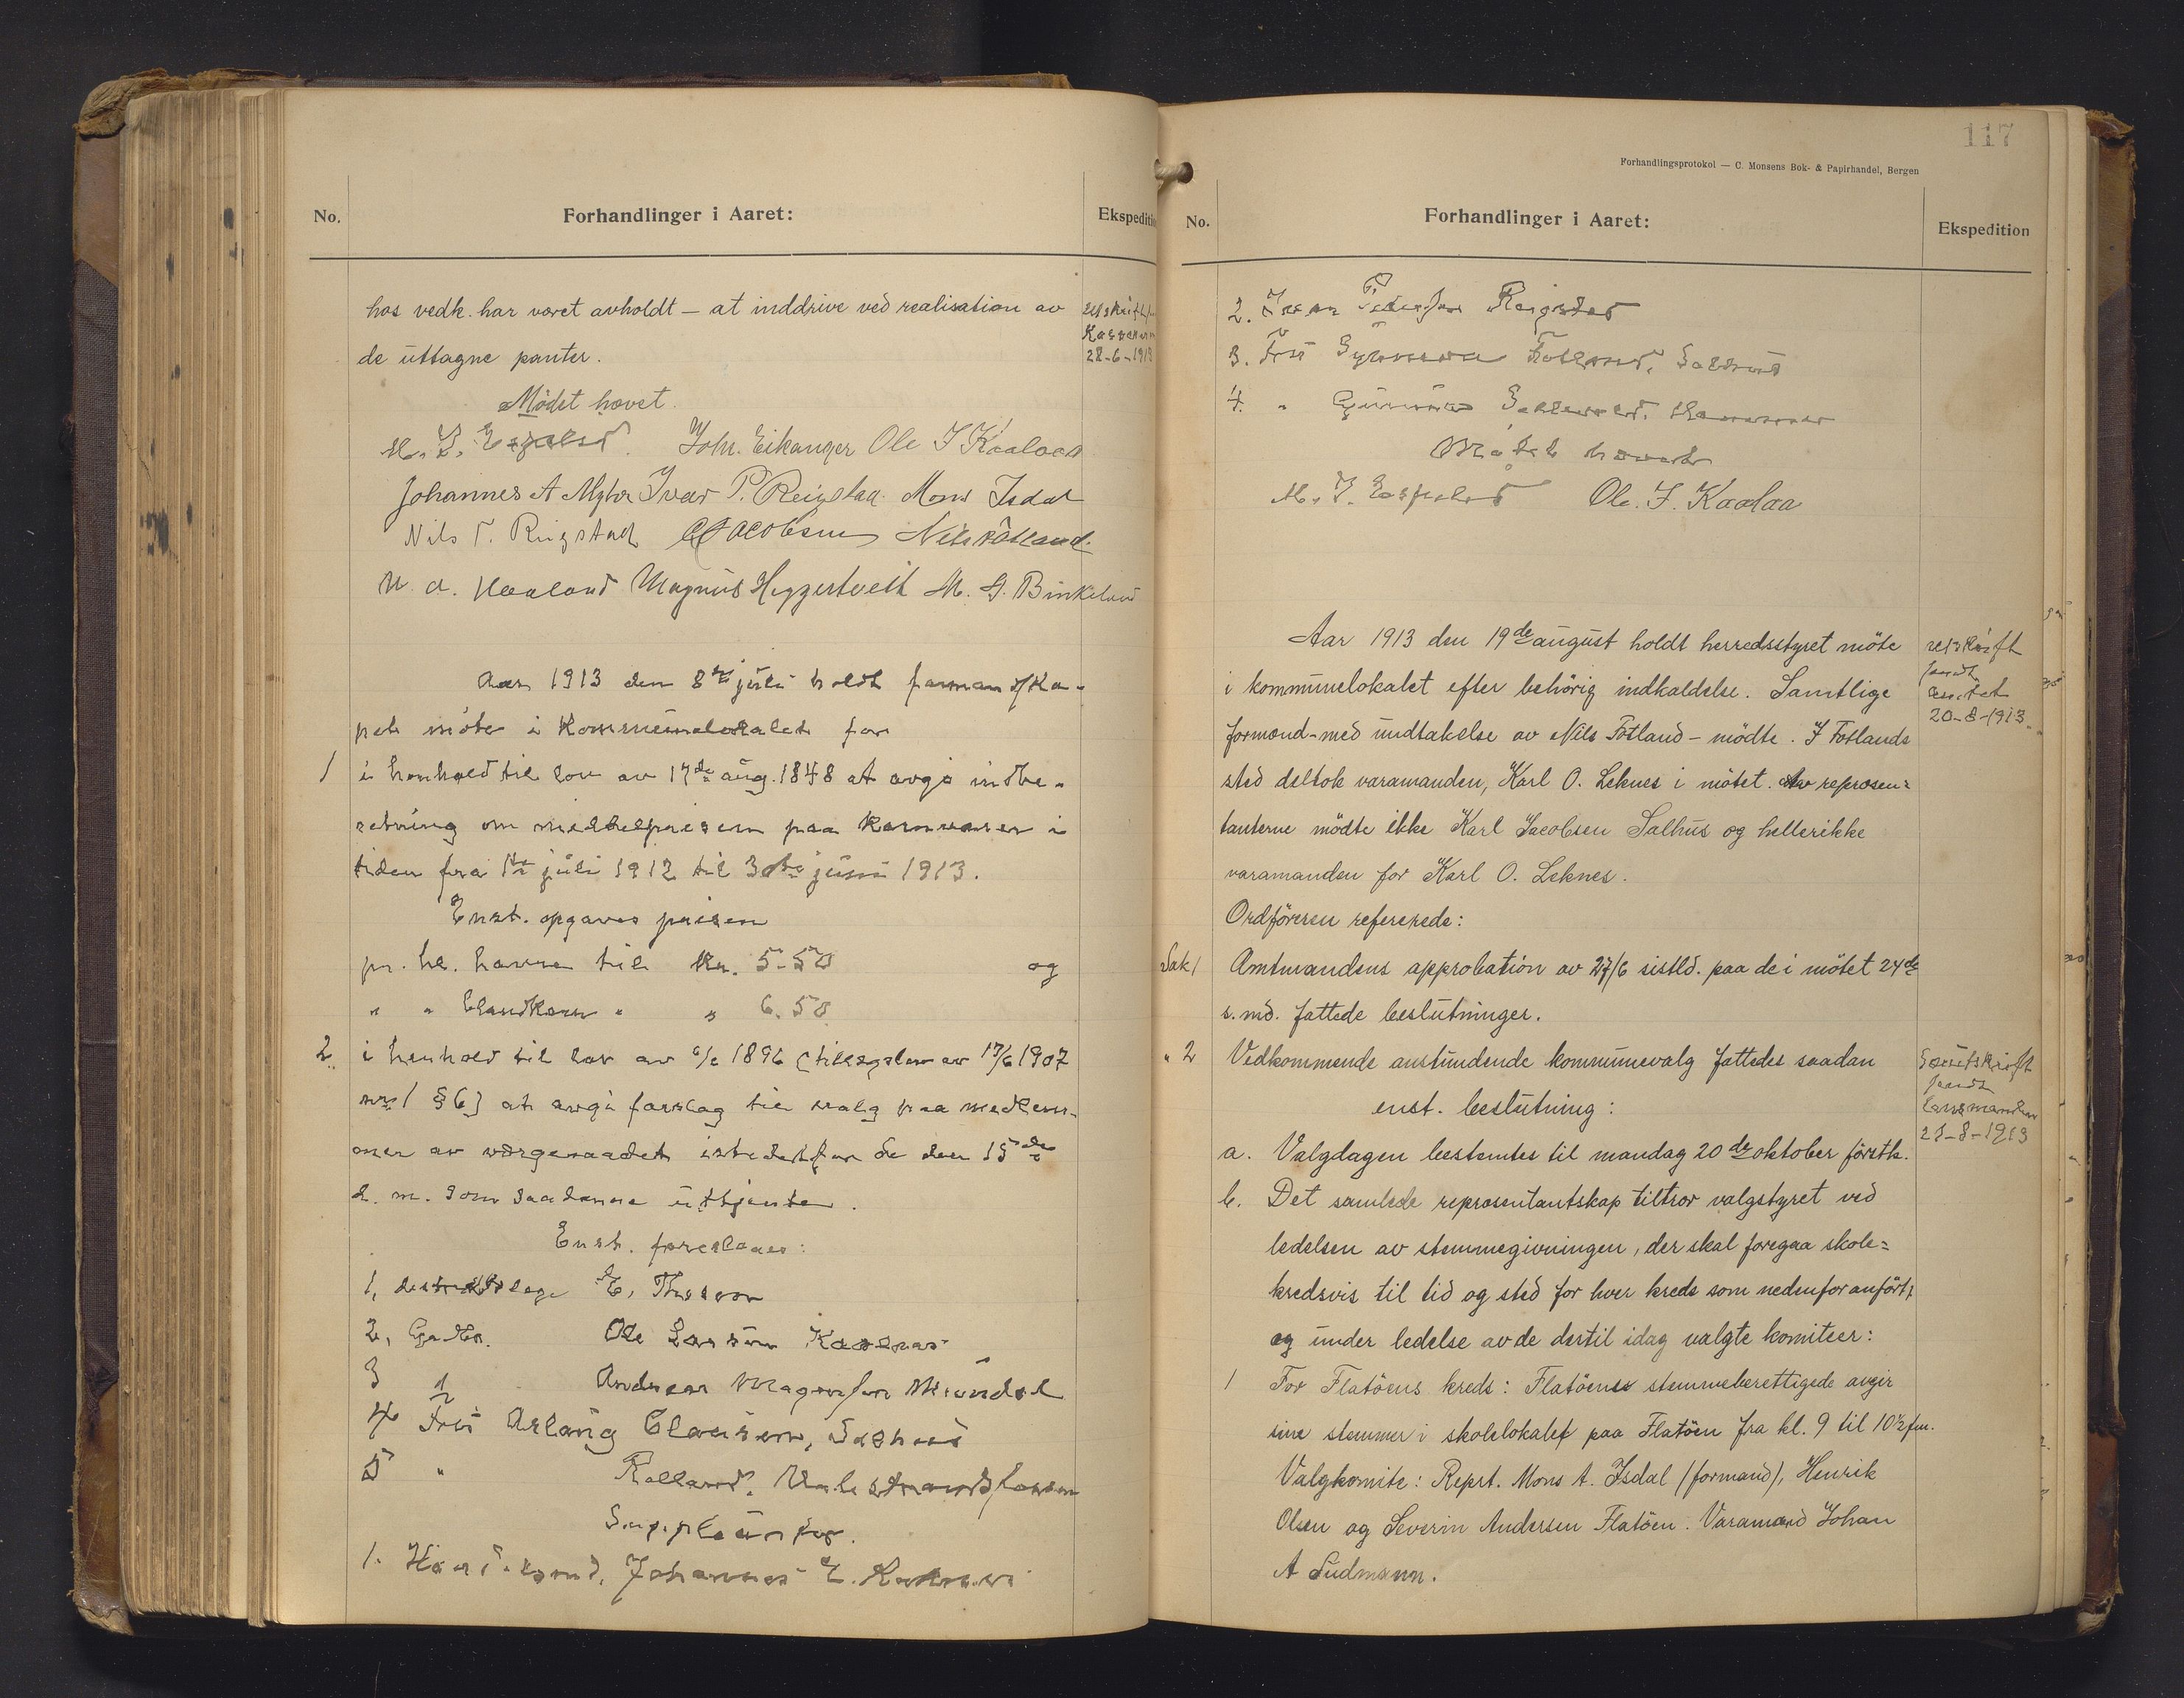 No.
Forhandlinger i Aaret:
Ekspedition
hos vedk. har været avholdt — at inddrive ved realisation av
de uttagne panter.
utskrift
Kasseren
28-6-1913
Mödet hævet.
M. J. Espelid. Johs. Eikanger Ole J Kaalaas
Johannes A Myhr Ivar P. Reigstad Mons Isdal
Nils T. Reigstad C Jacobsen Nils Fotland.
N. A. Haaland Magnus Heggertveit M. G. Birkeland
Aar 1913 den 8de juli holdt formandska-
pet möte i Kommunelokalet for
1 i henhold til lov av 17de aug. 1848 at avgi indbe-
retning om middelprisen paa kornvarer i
tiden fra 1ste juli 1912 til 30te juni 1913.
Enst. opgaves prisen
pr. hl. havre til Kr. 5.50 og
" " blandkorn " " 6.50
2 i henhold til lov av 6/6 1896 (tillægslov av 17/6 1907
nr 1 § 6) at avgi forslag til valg paa medlem-
mer av værgeraadet istedetfor de den 15de
d. m. som saadanne uttjente.
Enst. foreslaaes:
1, distriktslæge E. Thesen
2, Gaardbr. Ole Larsen Kaalaas
3 " Andreas Magnussen Mundal
4 Fru Aslaug Clausen, Salhus
5 " Rolland. Valestrandsfossen
Suppleanter.
1. Haandverksmd. Johannes E.
117
Forhandlingsprotokol — C. Monsens Bok- & Papirhandel, Bergen
No.
Forhandlinger i Aaret:
Ekspedition
2. Ivar Pedersen Reigstad
3. Fru Synneva Fotland, Salhus
4. " Gunnild
Mötet hævet
M. J. Espelid Ole. J. Kaalaas
Aar 1913 den 19de august holdt herredsstyret möte
i kommunelokalet efter behörig indkaldelse. Samtlige
formænd – med undtakelse av Nils Fotland – mödte. I Fotlands
sted deltok varamanden, Karl O. Leknes i mötet. Av repræsen=
tanterne mödte ikke Karl Jacobsen Salhus og hellerikke
varamanden for Karl O. Leknes.
utskrift
sendt
amtet
20-8-1913.
Ordföreren refererede:
Sak 1 Amtmandens approbation av 27/6 sistld. paa de i mötet 24de
s. md. fattede beslutninger.
" 2 Vedkommende anstundende kommunevalg fattedes saadan
enst. beslutning:
Særutskrift
sendt
lensmanden
21-8-1913
a. Valgdagen bestemtes til mandag 20de oktober förstk.
b. Det samlede repræsentantskap tiltror valgstyret ved
ledelsen av stemmegivningen, der skal foregaa skole=
kredsvis til tid og sted for hver kreds som nedenfor anfört,
og under ledelse av de dertil idag valgte komiteer:
1 For Flatöens kreds: Flatöens stemmeberettigede avgir
sine stemmer i skolelokalet paa Flatöen fra kl. 9 til 10½ fm.
Valgkomite: Reprt. Mons A. Isdal (formand), Henrik
Olsen og Severin Andersen Flatöen. Varamand Johan
A Sudmann.